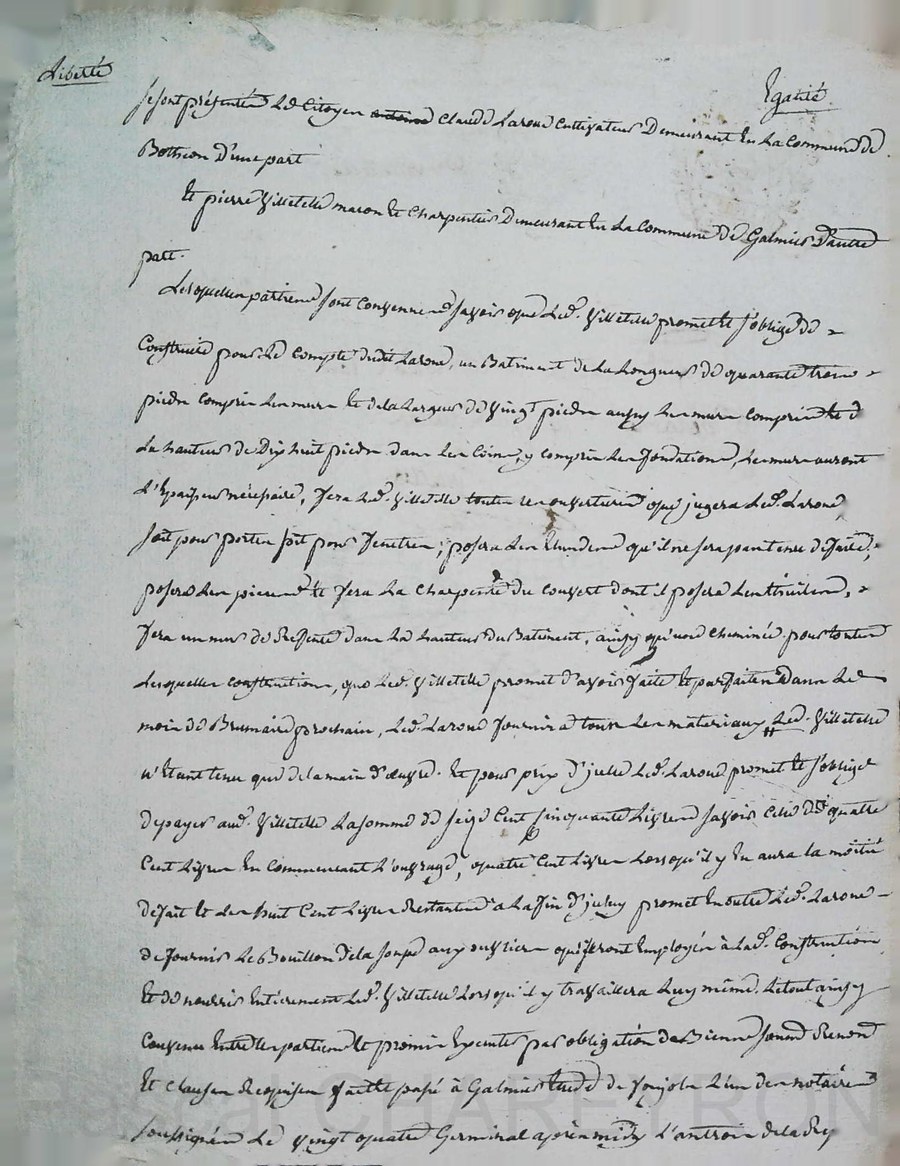 Liberté
Egalité
Se sont présentés Le Citoyen antoine Claude Laroue Cultivateur Demeurant En La Commune de
Bothion D'une part
Et pierre Villetelle macon Et Charpentier Demeurant En La Commune De Galmier D'autre
part.
Lesquelles parties Sont Convenues Savoir que Led. Villetelle promet Et S'oblige de
Construire pour Le Compte dudit Laroue, un Batiment de La Longueur de quarante trois
pieds compris Les murs Et de la Largeur de Vingt pieds aussy Les murs Compris Et de
La hauteur de Dix huit pieds dans Les Coins, y compris Les fondations, Les murs auront
L'Epaisseur nécessaire, fera Led. Villetelle toutes les ouvertures que jugera Led. Laroue,
Soit pour portes soit pour fenetres; posera Les qu'il ne sera pas tenu de faire,
posera Les pierres Et fera La Charpente du couvert dont il posera Les thuiles,
fera un mur de Refente dans La hauteur Du Batiment, ainsy qu'une Cheminée pour toutes
Lesquelles constructions, que Led. Villetelle promet D'avoir faites Et parfaites Dans Le
mois de Brumaire prochain, Led. Laroue fournira tous Les materiaux Led. Villetelle
n'Etant tenu que de la main D'œuvre. Et pour prix D'icelle Led. Laroue promet Et S'oblige
De payer aud. Villetelle La somme de seize Cent cinquante Livres Savoir Celle de quatre
Cent Livres En Commencant L'ouvrage, quatre Cent Livres Lorsqu'il y En aura La moitié
de fait Et Les huit Cent Livres Restantes a La fin D'iceluy promet En outre Led. Laroue
de fournir Le Bouillon de la Soupe aux ouvriers qui seront Employés à Lad. Construction
Et de nourrir Entierement Led. Villetelle Lorsqu'il y travaillera Luy même. Le tout ainsy
Convenu Entre Les parties Et promis Executer par obligation de Biens Soumis Renon
Et Clauses Requises faitte passé à Galmier Etude de L'un des notaires
Soussignés Le vingt quatre Germinal après midy L'an trois de la Rep
Pascal CHAREYRON